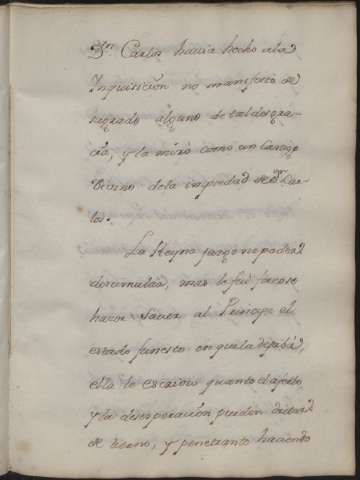 Dn. Carlos havia hecho ala
Inquisicion no manifestó de
sagrado alguno de tal desgra-
cia, y la miró como un Castigo
Divino dela impiedad de Dn. Car-
los.
La Reyna juzgó no poder
disimular, mas le fué forzoso
hacer saver al Principe el
estado funesto en que la dejaba,
ella le escrivio quanto el afecto
y la desesperacion pueden dictar
de tierno, y penetrante haciendo